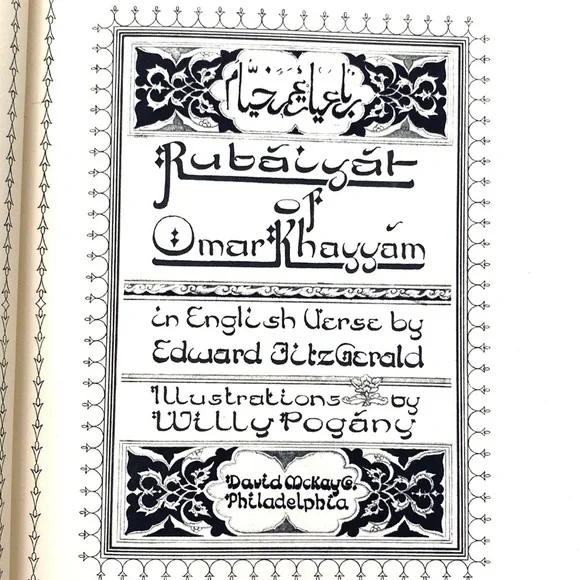 رباعيات عمر خيّام
Rubáiyát
of
Omar Khayyám
in English Verse by
Edward FitzGerald
Illustrations by
Willy Pogány
David McKay C.
Philadelphia